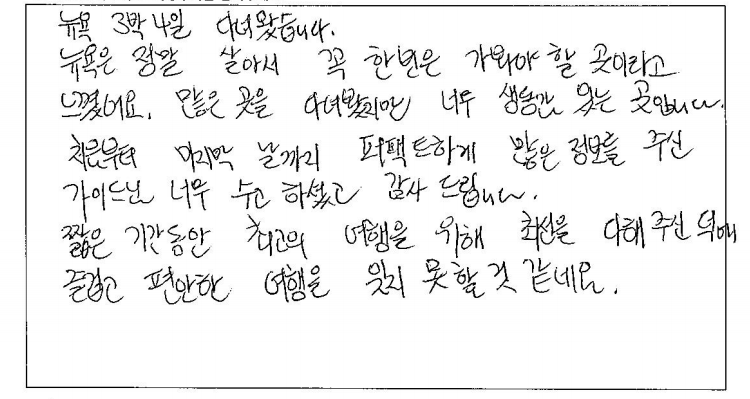 뉴욕 3박 4일 다녀왔습니다.
뉴욕은 정말 살아서 꼭 한번은 가봐야 할 곳이라고
느꼈어요. 많은 곳을 다녀봤지만 너무 생동감 있는 곳입니다.
처음부터 마지막 날까지 퍼팩트하게 많은 정보를 주신
가이드님 너무 수고 하셨고 감사 드립니다.
짧은 기간동안 최고의 여행을 위해 최선을 다해 주신 덕에
즐겁고 편안한 여행을 잊지 못할 것 같네요.